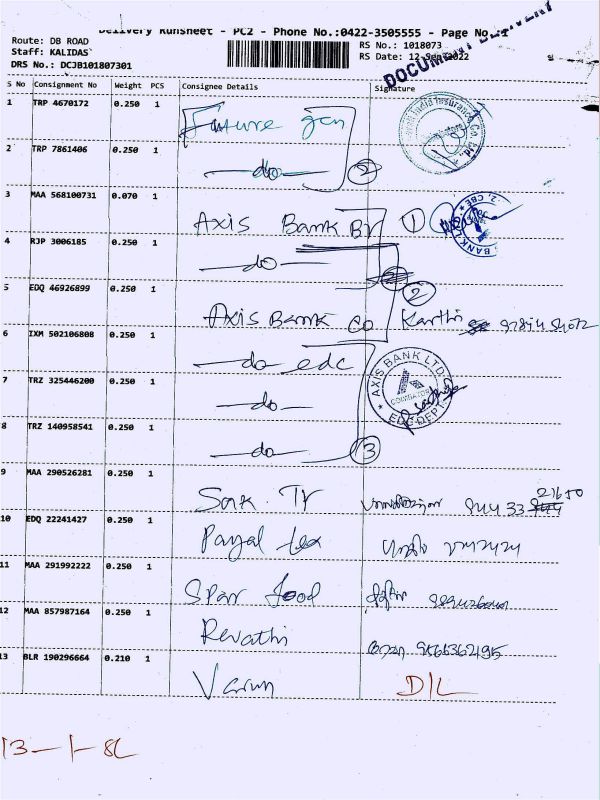 Delivery Runsheet - PC2 - Phone No.:0422-3505555 - Page No. 1
Route: DB ROAD
Staff: KALIDAS
DRS No.: DCJB101807301
RS No.: 1018073
RS Date: 12-Sep-2022
DOCUMENT DELIVERY
S No Consignment No Weight PCS Consignee Details Signature
1 TRP 4670172 0.250 1 Future gen
2 TRP 7861406 0.250 1 -do- 2
3 MAA 568100731 0.070 1 Axis Bank Br 1
4 RJP 3006185 0.250 1 -do-
2
5 EDQ 46926899 0.250 1 Axis Bank Co Karthi
6 IXM 502106808 0.250 1 -do- edc
AXIS BANK LTD.
COIMBATORE
EDC DEPT.
7 TRZ 325446200 0.250 1 -do-
8 TRZ 140958541 0.250 1 -do- 3
9 MAA 290526281 0.250 1
10 EDQ 22241427 0.250 1 Payal tex
11 MAA 291992222 0.250 1 Spar food
12 MAA 857987164 0.250 1 Revathi
13 BLR 190296664 0.210 1 Varun D/L
13-1-